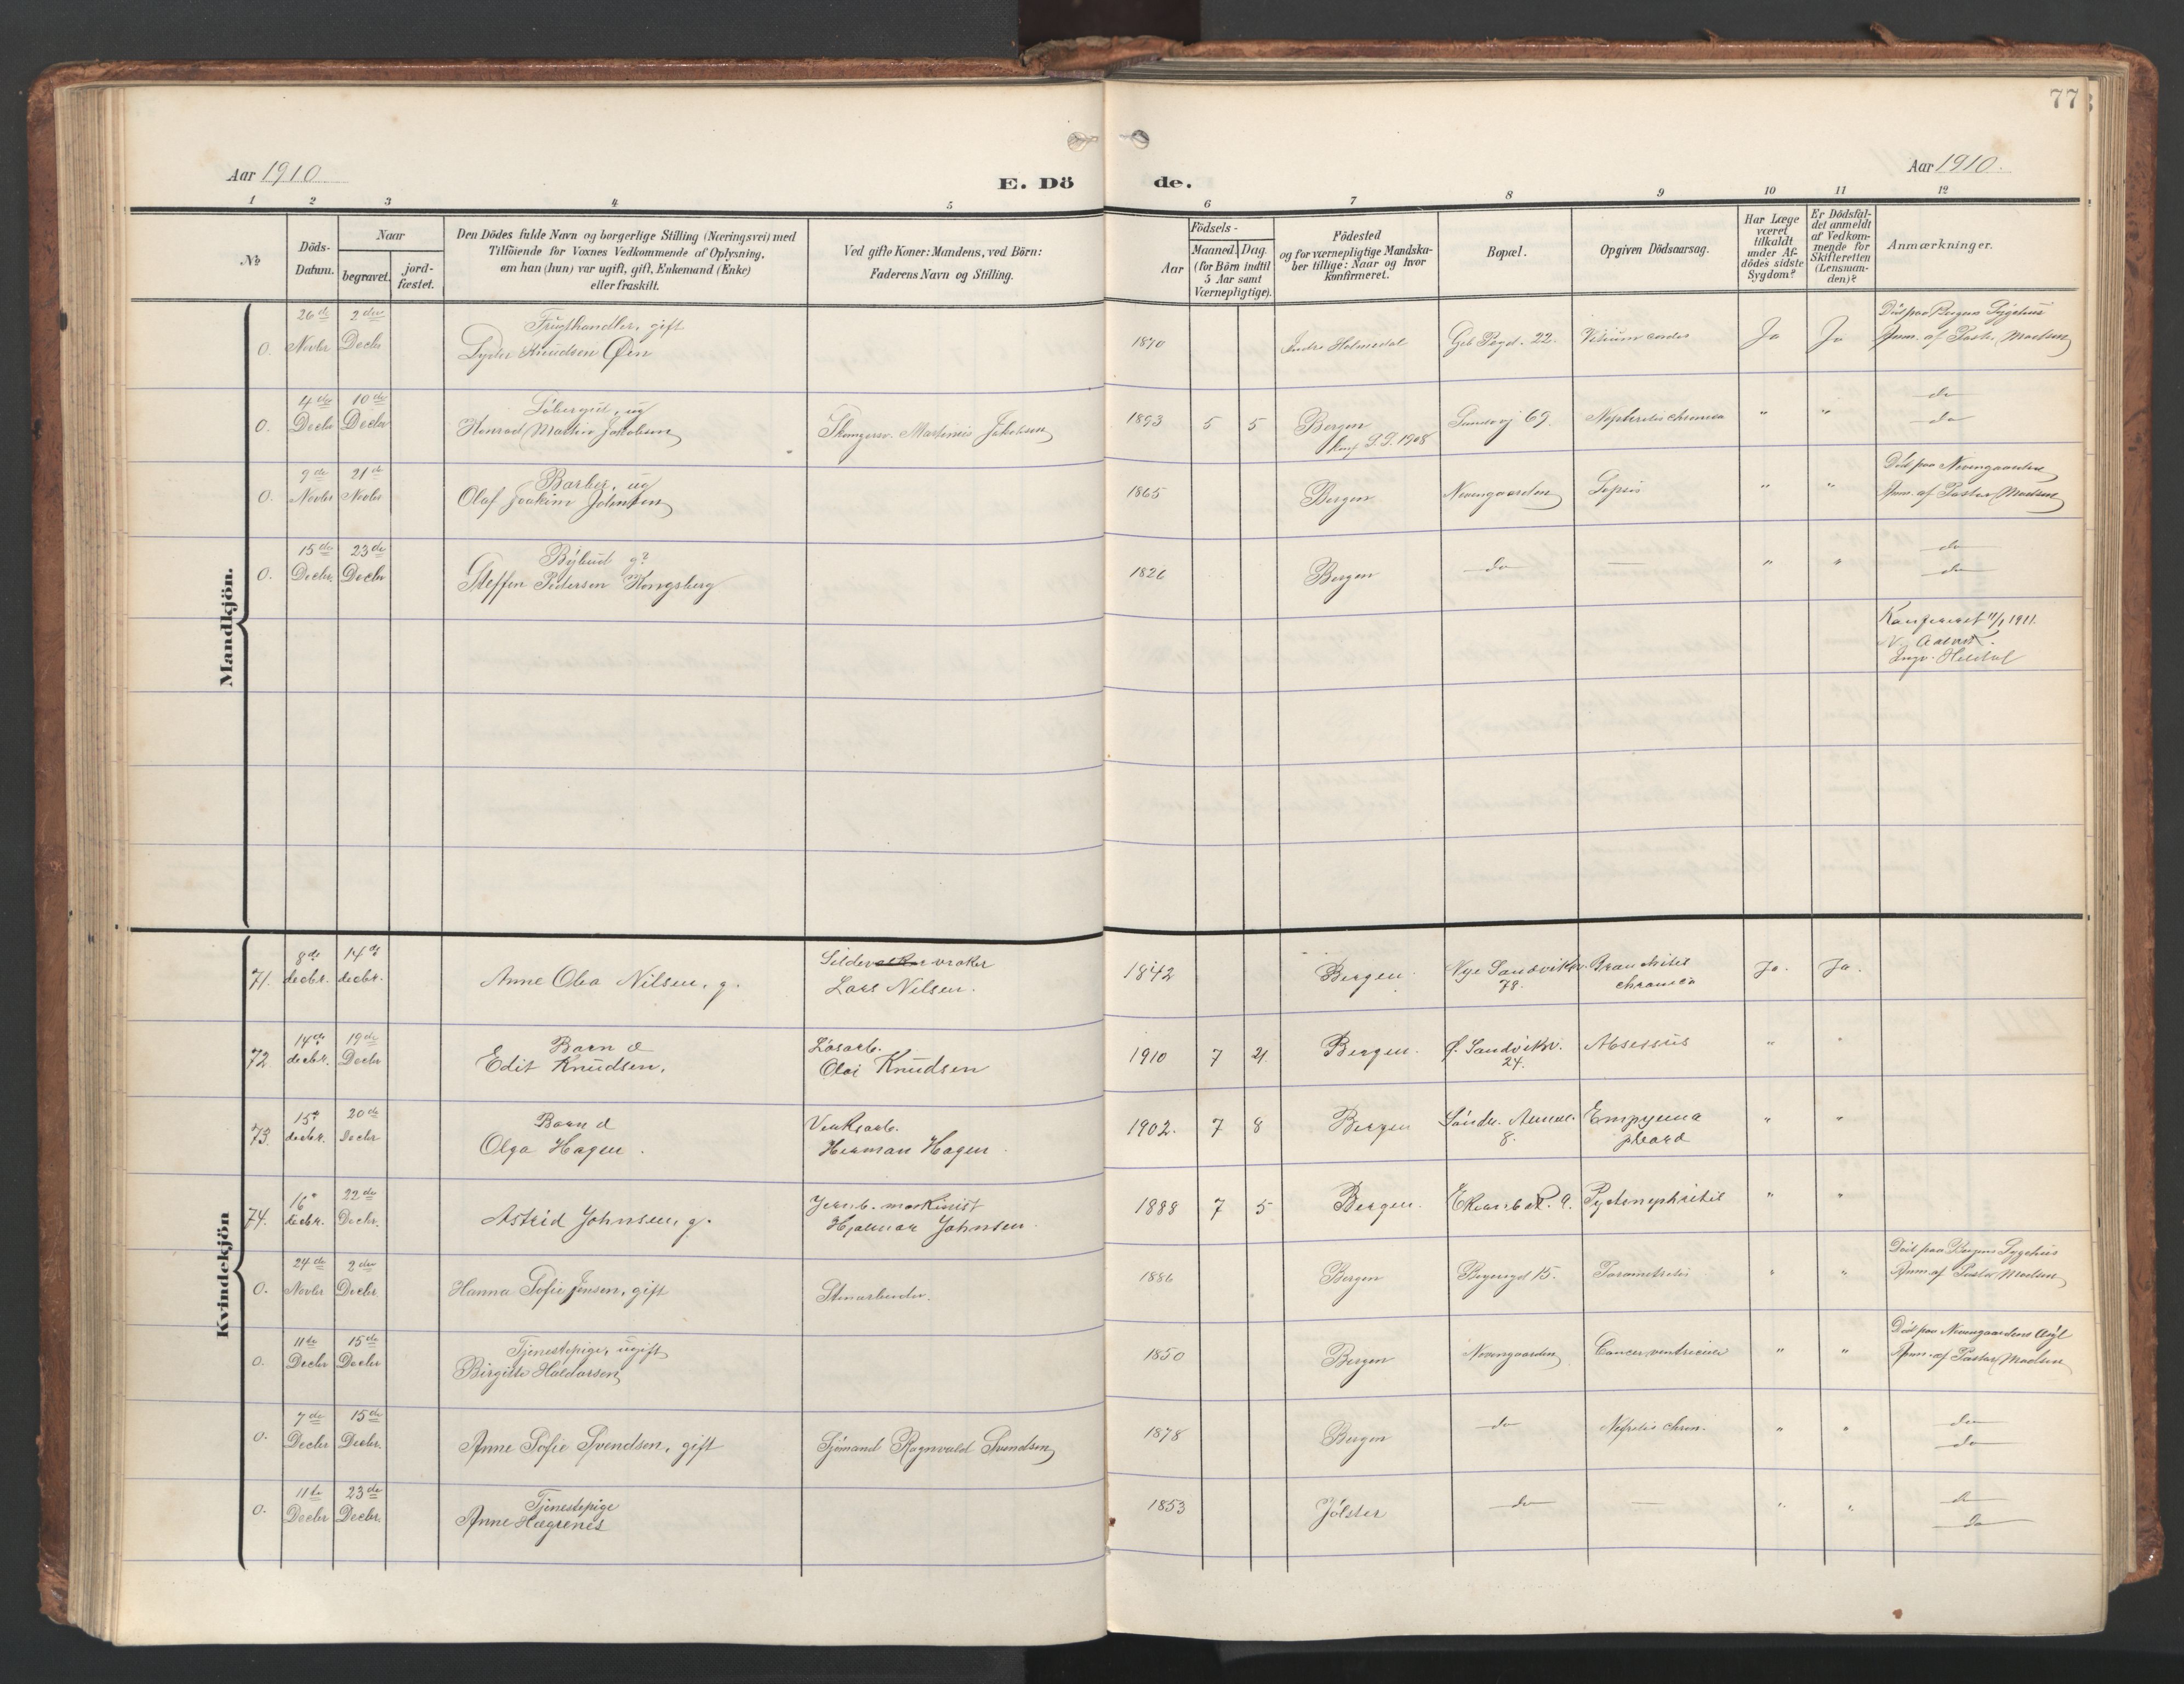 77
Aar 1910
E. Dö
de.
Aar 1910.
1 2 3 4 5 6 7 8 9 10 11 12
№
Döds-
Datum.
Naar
begravet.
jord-
fæstet.
Den Dödes fulde Navn og borgerlige Stilling (Næringsvei) med
Tilföiende for Voxnes Vedkommende af Oplysning,
om han (hun) var ugift, gift, Enkemand (Enke)
eller fraskilt.
Ved gifte Koner: Mandens, ved Börn:
Faderens Navn og Stilling.
Födsels-
Aar
Maaned. Dag.
(for Börn indtil
5 Aar samt
Værnepligtige).
Födested
og for værnepligtige Mandska-
ber tillige: Naar og hvor
konfirmeret.
Bopæl.
Opgiven Dödsaarsag.
Har Læge
været
tilkaldt
under Af-
dödes sidste
Sygdom?
Er Dödsfal-
det anmeldt
af Vedkom-
mende for
Skifteretten
(Lensman-
den)?
Anmærkninger.
Mandkjön.
26de 2den Frugthandler, gift Død paa Bergens Sygehus
0. Novbr Decbr Lyder Knudsen Øen 1870 Indre Holmedal 22. Vitium cordis Ja Ja Anm. af Pastor Madsen
4de 10de Løbergut, ug do
0. Decbr Decbr Konrad Martin Jakobsen Martinus Jakobsen 1893 5 5 Bergen 69. Nephritis chronica " " do
Konf 1908
9de 21de Barber, ug Død paa Nevengaarden
0. Novbr Novbr Olaf Joakim Johnsen 1865 Bergen Nevengaarden Sepsis " " Anm. af Pastor Madsen
15de 23de Bybud g? do
0. Decbr. Decbr Steffen Pedersen Kongsberg 1826 Bergen do — " " do
Konfereret 11/1 1911.
Kvindekjön
8de 14de Silder vraker
71. decbr. decbr. Anne Olea Nilsen, g. Lars Nilsen. 1842 Bergen. Nye Sandviksv. Bronchitis Ja. Ja.
78. chronica
14de 19de Barn d Løsarb.
72 decbr. Decbr Edit Knudsen. Olai Knudsen 1910 7 21. Bergen. Ø. Sandviksv. Absessus " "
24.
15de 20de Barn d Verksarb.
73. decbr. Decbr Olga Hagen. Herman Hagen 1902. 7 8 Bergen Empyema " "
8.
16de 22de Jernb. maskinist
74. decbr. Decbr. Astrid Johnsen, g. Hjalmar Johnsen. 1888 7 5 Bergen. Pyelonephritis " "
24de 2den Død paa Bergens Sygehus
0. Novbr Decbr Hanna Sofie Jensen, gift Stenarbeider. 1886 Bergen 15. Parametritis " " Anm. af Pastor Madsen
11te 15de Tjenestepige, ugift Død paa Nevengaardens Asyl
0. Decbr Decbr Birgitte Haldorsen 1850 Bergen Nevengaarden Cancer ventriculi " " Anm. af Pastor Madsen
7de 15de do
0. Decbr Decbr. Anne Sofie Svendsen, gift Sjømand Ragnvald Svendsen 1878 Bergen do Nefritis chron. " " do
11te 23de Tjenestepige do
0. Decbr Decbr. Anne Hægrenes 1853 Jølster do — " " do